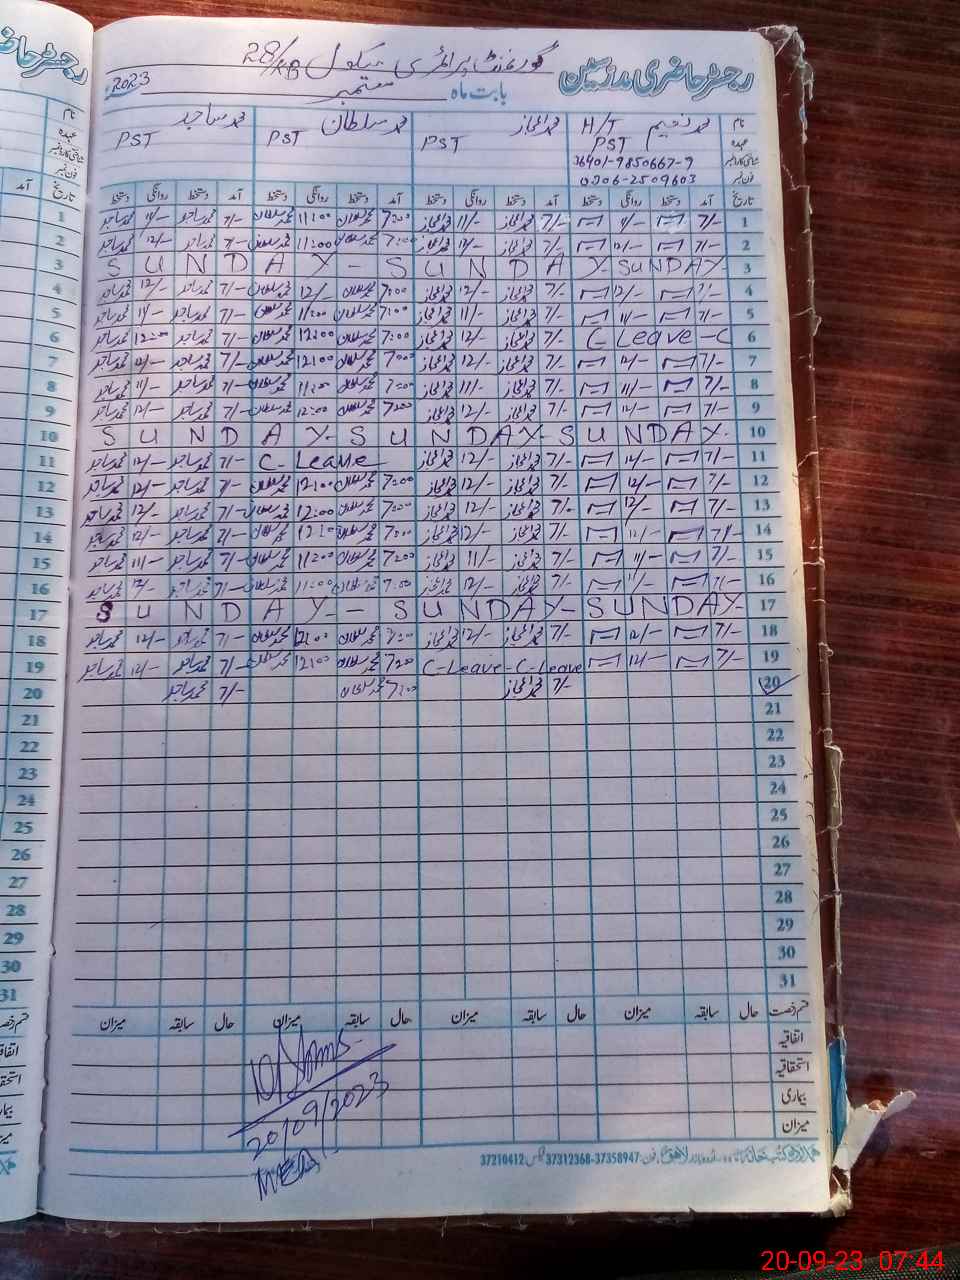 گورنمنٹ پرائمری سکول 28/KB
رجسٹر حاضری مدرسین
بابت ماہ ستمبر 2023
نام محمد نعیم H/T محمد اعجاز محمد سلطان محمد ساجد
عہدہ PST PST PST PST
36401-9850667-9
فون نمبر 0306-2509603
تاریخ آمد دستخط روانگی دستخط آمد دستخط روانگی دستخط آمد دستخط روانگی دستخط آمد دستخط روانگی دستخط
1 7/- 11/- 7/- محمد اعجاز 11/- محمد اعجاز 7:00 محمد سلطان 11:00 محمد سلطان 7/- محمد ساجد 11/- محمد ساجد
2 7/- 12/- 7/- محمد اعجاز 12/- محمد اعجاز 7:00 محمد سلطان 11:00 محمد سلطان 7/- محمد ساجد 12/- محمد ساجد
SUNDAY - SUNDAY - SUNDAY 3
4 7/- 12/- 7/- محمد اعجاز 12/- محمد اعجاز 7:00 محمد سلطان 12/- محمد سلطان 7/- محمد ساجد 12/- محمد ساجد
5 7/- 11/- 7/- محمد اعجاز 11/- محمد اعجاز 7:00 محمد سلطان 11:00 محمد سلطان 7/- محمد ساجد 11/- محمد ساجد
6 C-Leave-C 7/- محمد اعجاز 12/- محمد اعجاز 7:00 محمد سلطان 12:00 محمد سلطان 7/- محمد ساجد 12:00 محمد ساجد
7 7/- 12/- 7/- محمد اعجاز 12/- محمد اعجاز 7:00 محمد سلطان 12:00 محمد سلطان 7/- محمد ساجد 12/- محمد ساجد
8 7/- 11/- 7/- محمد اعجاز 11/- محمد اعجاز 7:00 محمد سلطان 11:00 محمد سلطان 7/- محمد ساجد 11/- محمد ساجد
9 7/- 12/- 7/- محمد اعجاز 12/- محمد اعجاز 7:00 محمد سلطان 12:00 محمد سلطان 7/- محمد ساجد 12/- محمد ساجد
SUNDAY - SUNDAY - SUNDAY 10
11 7/- 12/- 7/- محمد اعجاز 12/- محمد اعجاز C-Leave 7/- محمد ساجد 12/- محمد ساجد
12 7/- 12/- 7/- محمد اعجاز 12/- محمد اعجاز 7:00 محمد سلطان 12:00 محمد سلطان 7/- محمد ساجد 12/- محمد ساجد
13 7/- 12/- 7/- محمد اعجاز 12/- محمد اعجاز 7:00 محمد سلطان 12:00 محمد سلطان 7/- محمد ساجد 12/- محمد ساجد
14 7/- 12/- 7/- محمد اعجاز 12/- محمد اعجاز 7:00 محمد سلطان 12:00 محمد سلطان 7/- محمد ساجد 12/- محمد ساجد
15 7/- 11/- 7/- محمد اعجاز 11/- محمد اعجاز 7:00 محمد سلطان 11:00 محمد سلطان 7/- محمد ساجد 11/- محمد ساجد
16 7/- 11/- 7/- محمد اعجاز 12/- محمد اعجاز 7:00 محمد سلطان 11:00 محمد سلطان 7/- محمد ساجد 12/- محمد ساجد
SUNDAY - SUNDAY - SUNDAY 17
18 7/- 12/- 7/- محمد اعجاز 12/- محمد اعجاز 7:00 محمد سلطان 12:00 محمد سلطان 7/- محمد ساجد 12/- محمد ساجد
19 7/- 12/- C-Leave-C-Leave 7:00 محمد سلطان 12:00 محمد سلطان 7/- محمد ساجد 12/- محمد ساجد
20 7/- محمد اعجاز 7:00 محمد سلطان 7/- محمد ساجد
21
22
23
24
25
26
27
28
29
30
31
قسم رخصت حال سابقہ میزان حال سابقہ میزان حال سابقہ میزان حال سابقہ میزان
اتفاقیہ
استحقاقیہ
بیماری
میزان
20/09/2023
فون: 37358947-37312368 فیکس 37210412
20-09-23 07:44